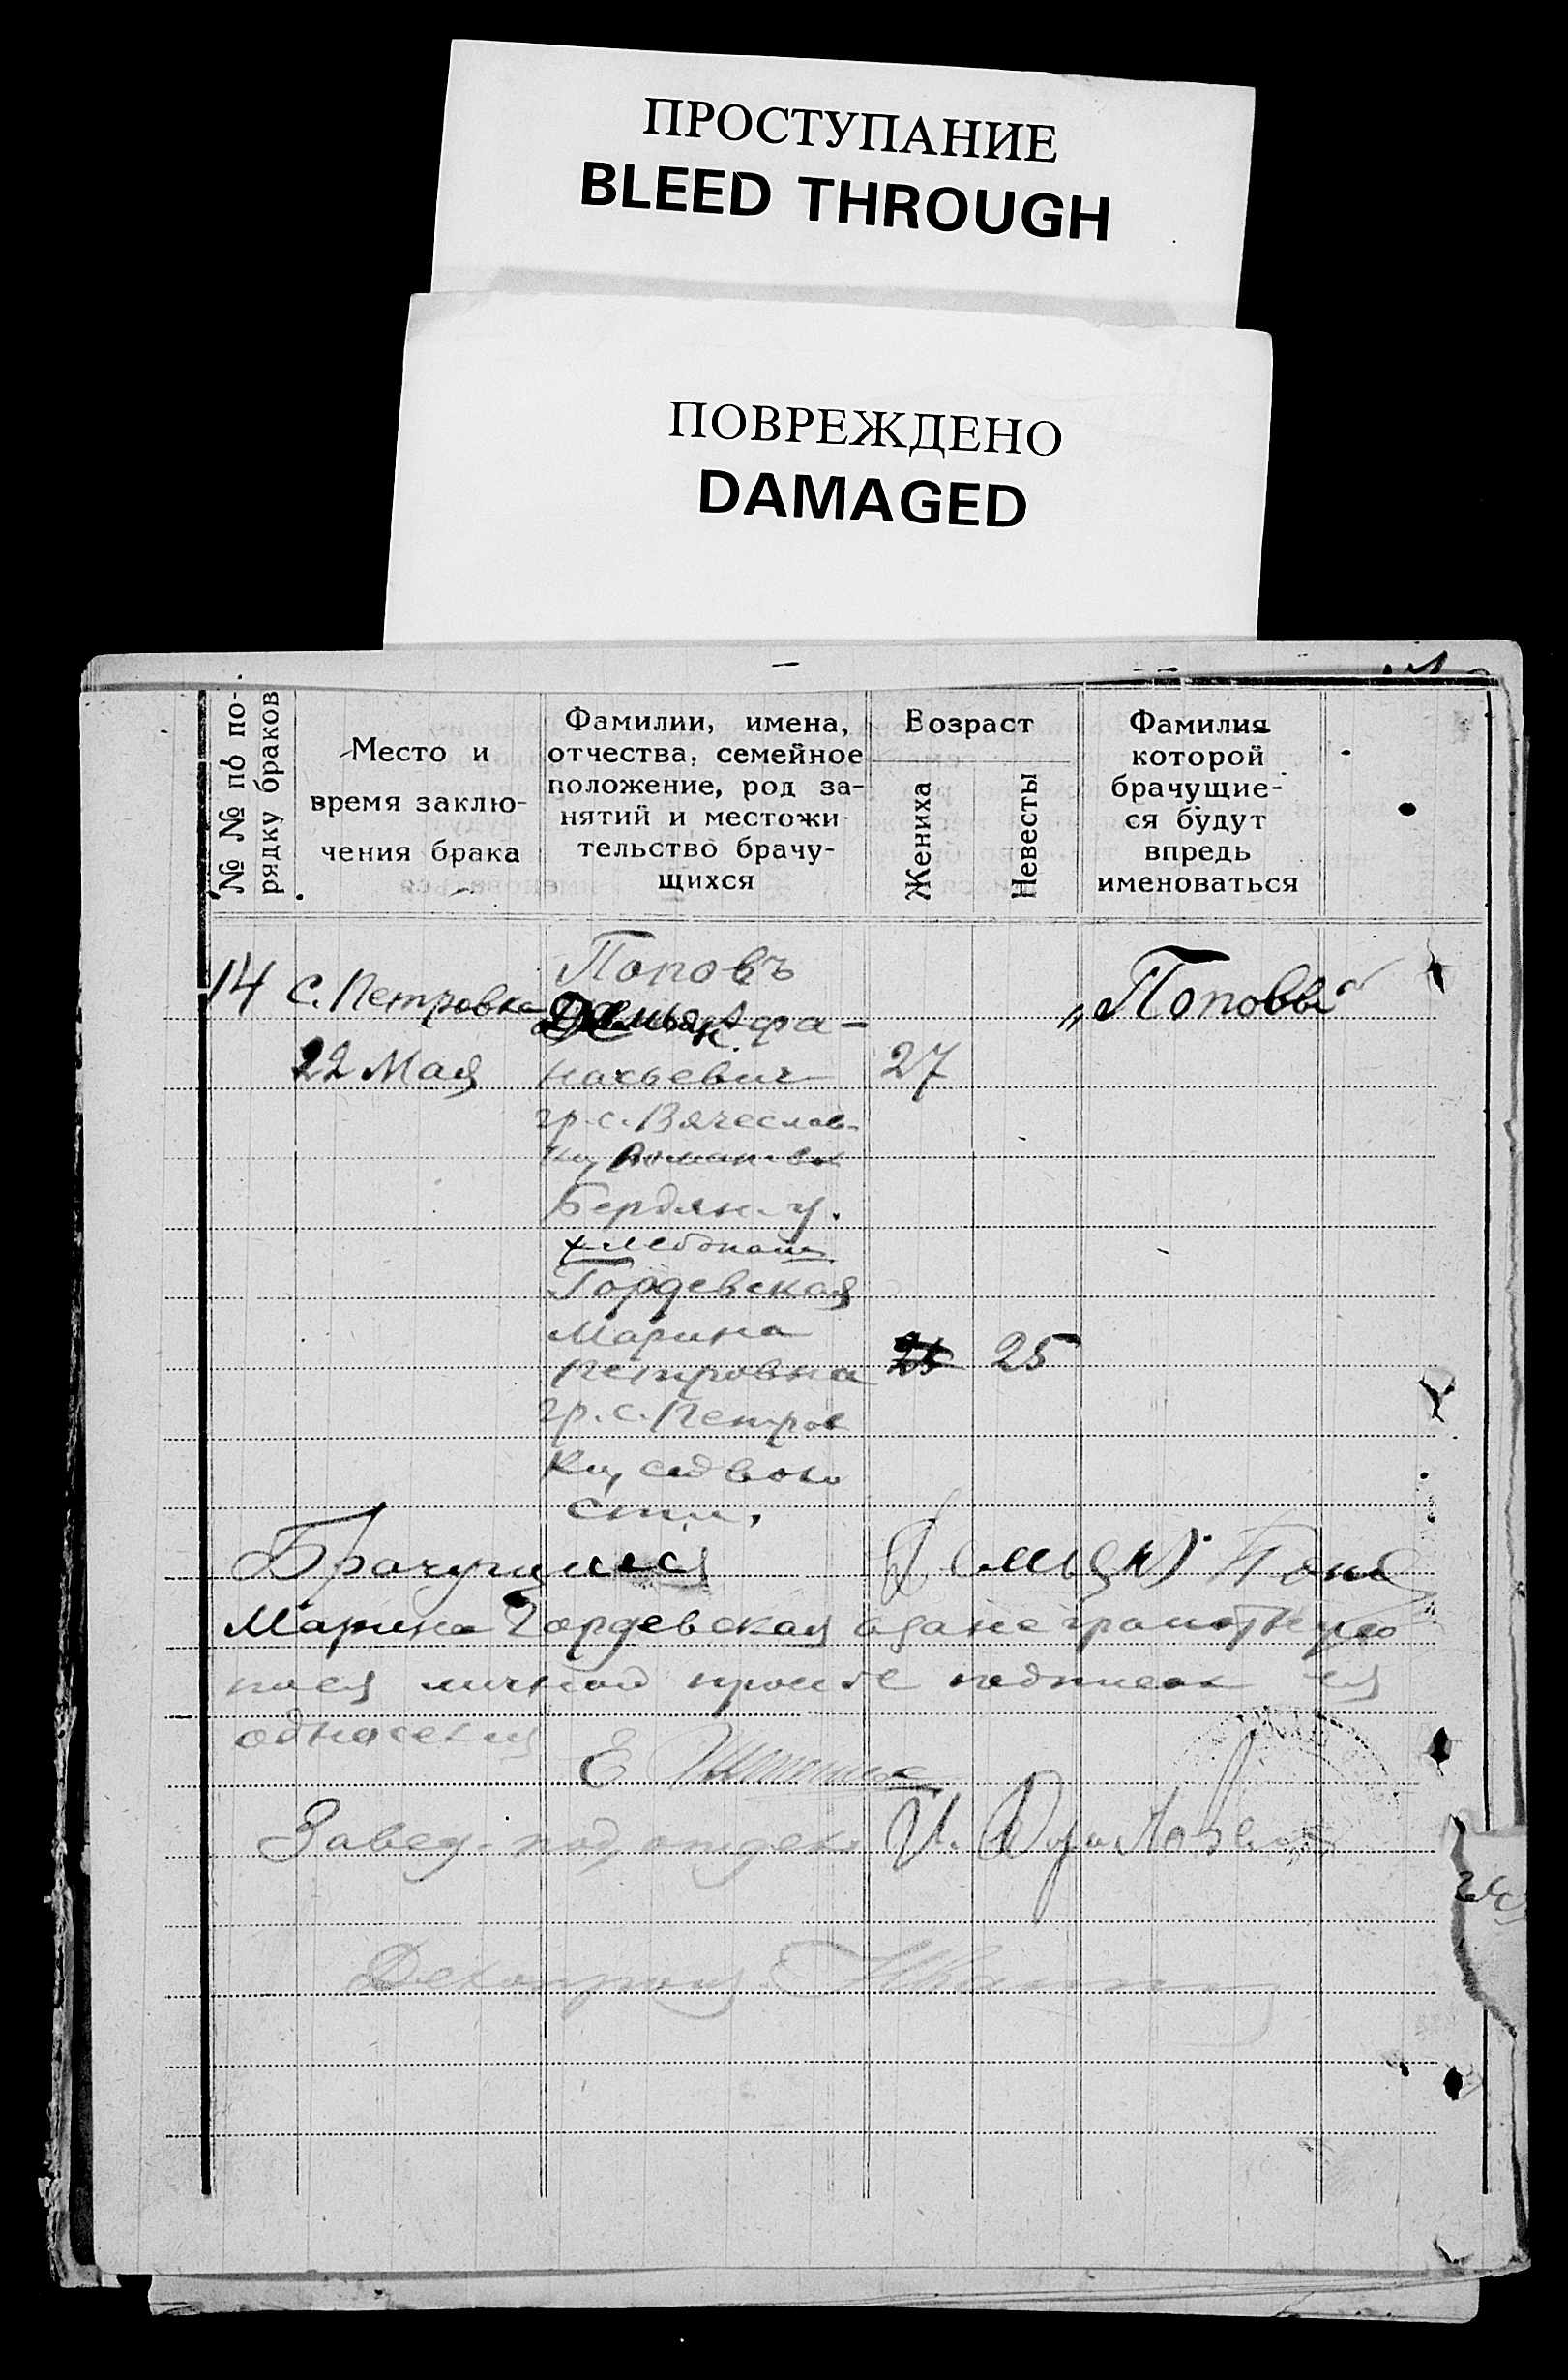 ПРОСТУПАНИЕ
BLEED THROUGH
ПОВРЕЖДЕНО
DAMAGED
№ № по по-
рядку браков
Место и
время заклю-
чения брака
Фамилии, имена,
отчества, семейное
положение, род за-
нятий и местожи-
тельство брачу-
щихся
Возраст
Жениха
Невесты
Фамилия
которой
брачущие-
ся будут
впредь
именоваться
14 с. Петровка
22 Мая
Поповъ
Демьян Афа-
насьевич
гр. с. Вячеслав-
ки,
Бердян. у.
хлебопаш
27
„Поповы“
Гордевская
Марина
Петровна
гр. с. Петров
ки,
25
Брачущиеся Демьян Попов
Марина Гордевская а за неграмотную
по ея личной просьбе
Е
Завед. подотдел. И.
Делопроиз.